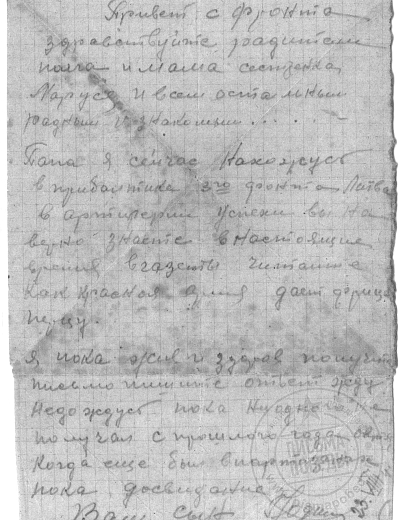 Привет с фронта
здравствуйте радители
папа и мама сестренка
Маруся и всем остальным
радным и знакомым....
Папа я сейчас нахожуст
в прибалтика 3го фронта Литва
в артилерии Успехи вы на
верно знаете в настоящие
время в газеты читаите
как краская армия дает фрицам
перцу.
я пока жив и здоров получите
письмо пишите ответ жду
недождуст пока ниодного не
получал с прошлого года
когда еще был в партизанах
пока досвидание
Ваш сын